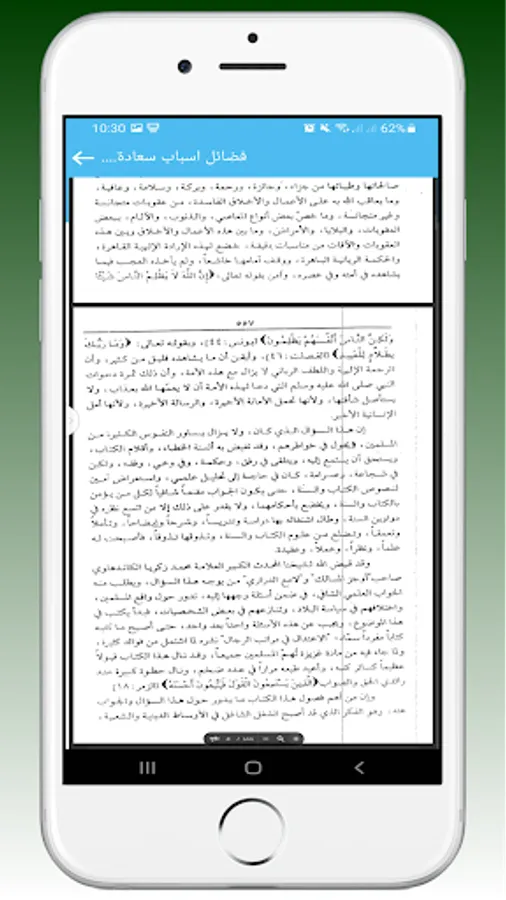 10:30 62%
فضائل اسباب سعادة....
صالحاتها وطيباتها من جزاء، وجائزة، ورحمة، وبركة، وسلامة، وعافية،
وما يعاقب الله به على الأعمال والأخلاق الفاسدة، من عقوبات متجانسة
وغير متجانسة، وما خص بعض أنواع المعاصي، والذنوب، والآثام، ببعض
العقوبات، والبلايا، والأمراض، وما بين هذه الأعمال والأخلاق وبين هذه
العقوبات والآفات من مناسبات دقيقة، خضع لهذه الإرادة الإلهية القاهرة،
والحكمة الربانية الباهرة، ووقف أمامها خاشعاً، ولم يأخذه العجب فيما
يشاهده في أمته وفي عصره، وآمن بقوله تعالى: ﴿إِنَّ اللَّهَ لَا يَظْلِمُ النَّاسَ شَيْئًا
٥٥٧
وَلَكِنَّ النَّاسَ أَنْفُسَهُمْ يَظْلِمُونَ﴾ [يونس: ٤٤]، وبقوله تعالى: ﴿وَمَا رَبُّكَ
بِظَلَّامٍ لِلْعَبِيدِ﴾ [فصلت: ٤٦]، وأيقن أن ما يشاهده قليل من كثير، وأن
الرحمة الإلهية واللطف الرباني لا يزال مع هذه الأمة، وأن ذلك ثمرة دعوات
النبي صلى الله عليه وسلم التي دعا لهذه الأمة أن لا يعمها الله بعذاب، ولا
يستأصل شأفتها، ولأنها تحمل الأمانة الأخيرة، والرسالة الأخيرة، ولأنها أمل
الإنسانية الأخير.
إن هذا السؤال الذي كان، ولا يزال يساور النفوس الكثيرة من
المسلمين، ويجول في خواطرهم، وقد تفيض به ألسنة الخطباء، وأقلام الكتاب،
ويستحق أن يستمع إليه، ويتلقى في رفق، وحكمة، وفي وعي، وفقه، ولكن
في شجاعة، وصرامة، كان في حاجة إلى تحليل علمي، واستعراض أمين
لنصوص الكتاب والسنة، حتى يكون الجواب مقنعاً شافياً لكل من يؤمن
بالكتاب والسنة، ويخضع لأحكامهما، ولا يقدر على ذلك إلا من اتسع نظره في
دواوين السنة، وطال اشتغاله بها دراسة وتدريساً، وشرحاً وإيضاحاً، وتأملاً
وتعمقاً، وتضلع من علوم الكتاب والسنة، وتذوقها تذوقاً، فأصبحت له
علماً، ونظراً، وعملاً، وعقيدة.
وقد قيض الله لشيخنا المحدث الكبير العلامة محمد زكريا الكاندهلوي
صاحب "أوجز المسالك" و"لامع الدراري" من يوجه هذا السؤال، ويطلب منه
الجواب العلمي الشافي، في ضمن أسئلة وجهها إليه، تدور حول واقع المسلمين،
واختلافهم في سياسة البلاد، وتنازعهم في بعض الشخصيات، فبدأ يكتب في
هذا الموضوع، ويجيب عن هذه الأسئلة واحداً بعد واحد، حتى أصبح ما كتبه
كتاباً مفرداً سماه "الاعتدال في مراتب الرجال" نشره لما اشتمل من فوائد كثيرة،
ولما جاء فيه من مادة غزيرة تهم المسلمين جميعاً، وقد نال هذا الكتاب قبولاً
عظيماً كسائر كتبه، وأعيد طبعه مراراً في عدد ضخم، ونال حظوة كبيرة عند
رائدي الحق والصواب ﴿الَّذِينَ يَسْتَمِعُونَ الْقَوْلَ فَيَتَّبِعُونَ أَحْسَنَهُ﴾ [الزمر: ١٨]
وإن من أهم فصول هذا الكتاب ما يدور حول هذا السؤال والجواب
عنه، وهو الفكر الذي قد أصبح الشغل الشاغل في الأوساط الدينية والشعبية،